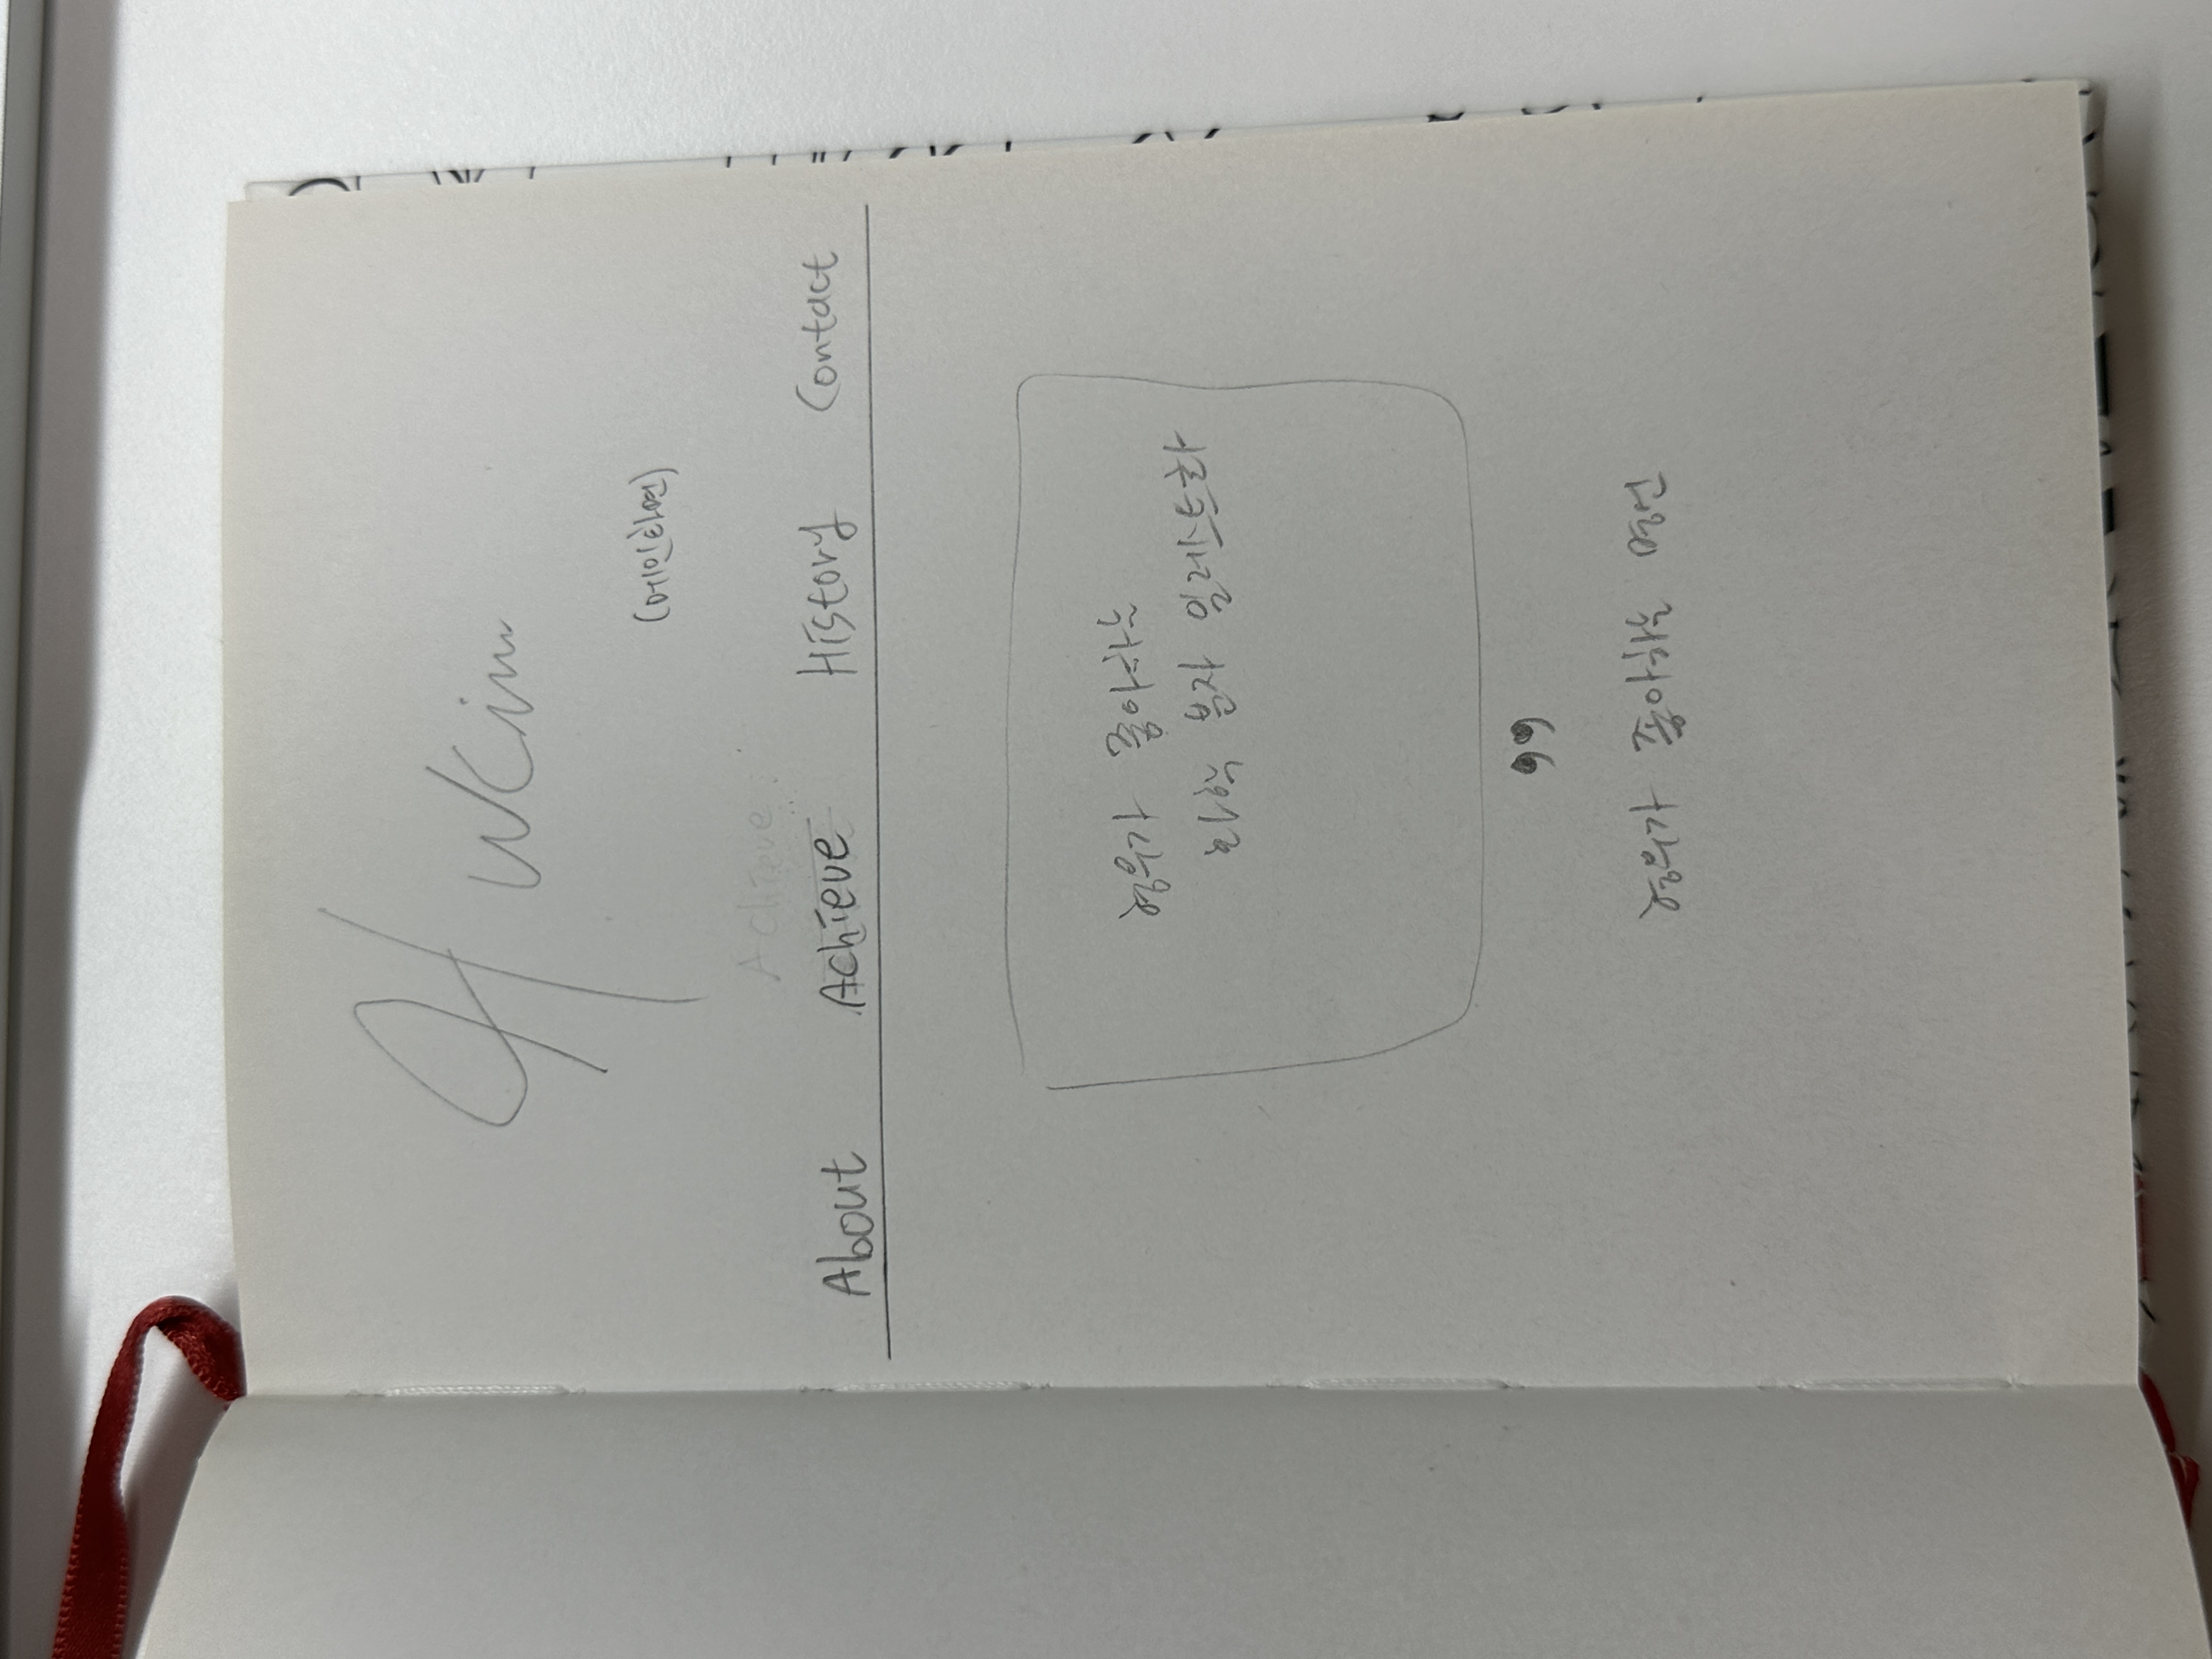 H WKim
(메인화면)
Achieve
About Achieve History Contact
형우가 좋아하는
화학 분자 일레스트화
형우가 좋아하는 명언